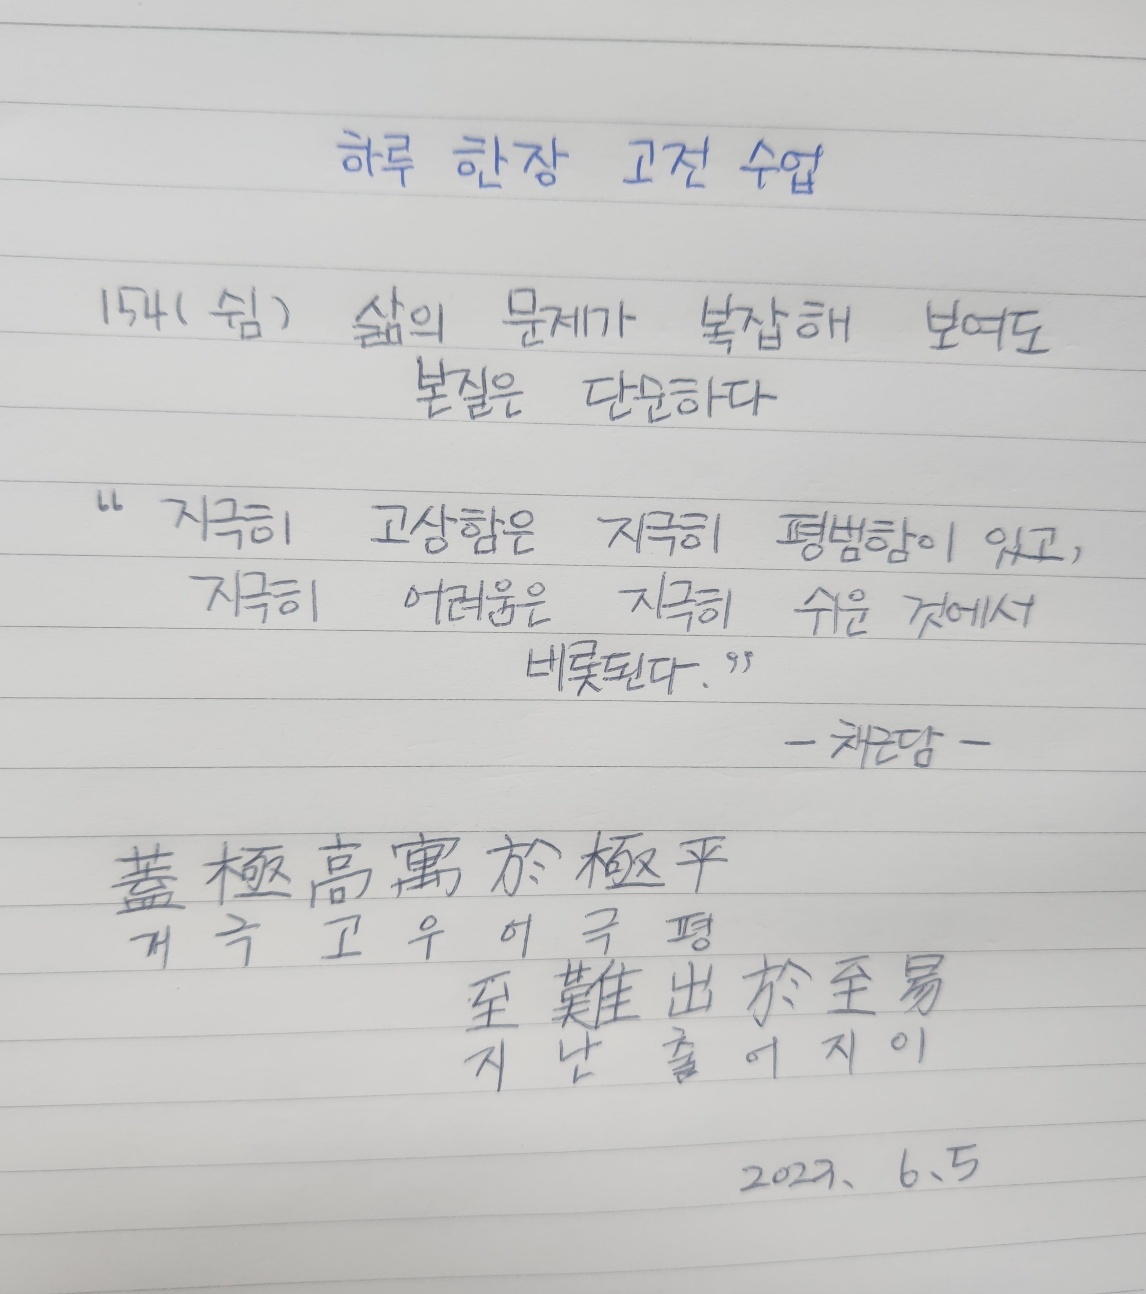 하루 한장 고전 수업
154( 쉼 ) 삶의 문제가 복잡해 보여도
본질은 단순하다
“ 지극히 고상함은 지극히 평범함이 있고,
지극히 어려움은 지극히 쉬운 것에서
비롯된다.”
- 채근담 -
蓋極高寓於極平
개극고우어극평
至難出於至易
지난출어지이
6.5